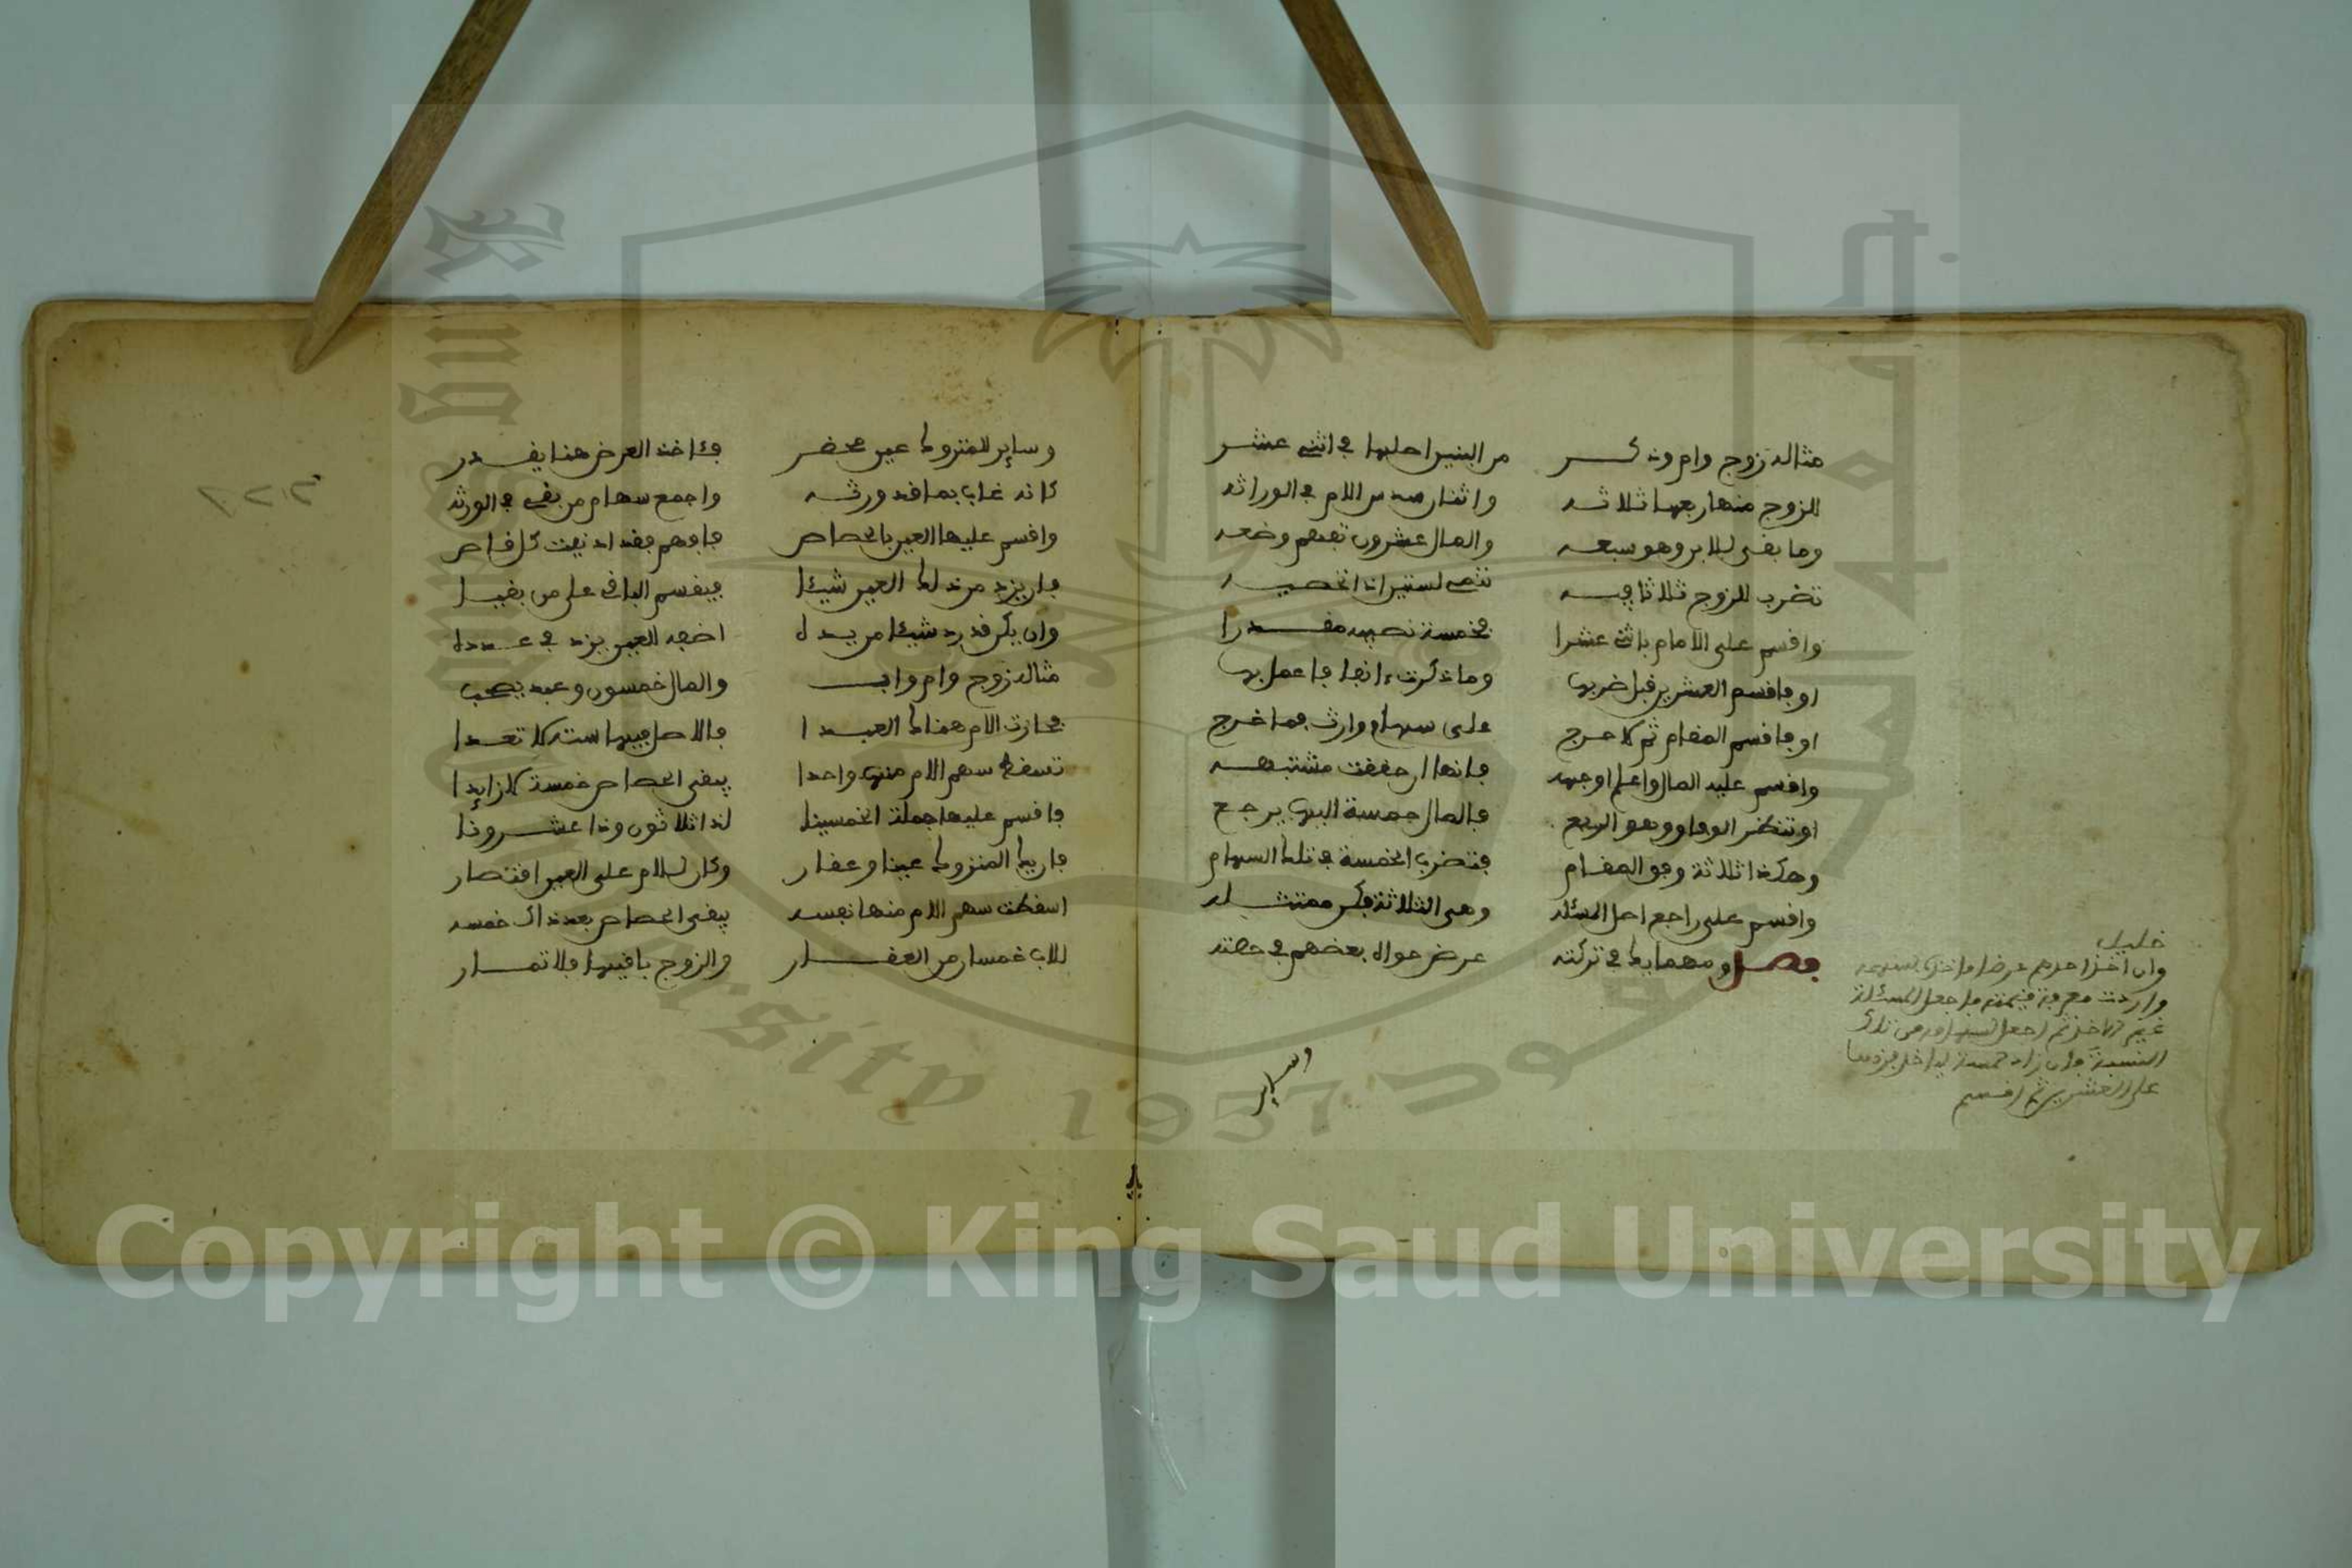 مثاله زوج وام وذكر من البنين اصلها في اثنى عشر
للزوج منها ربعها ثلاثه واثنان سدس الام في الوراثه
وما بقى للابن وهو سبعه والمال عشرون تفهم وضعه
تضرب للزوج ثلاثا فيه
واقسم على الامام باثنى عشرا فخمسة نصيبه مقدرا
او فاقسم العشرين قبل ضربها وما ذكرت ءانفا فاعمل بها
او فاقسم المقام ثم لا حرج على سهام وارث فما خرج
واقسم عليه المال واعلم اوجهه فانها ان حققت مشتبهه
او تنظر الوفاق وهو الربع فالمال خمسة اليها يرجع
وهكذا ثلاثة وفق المقام فتضرب الخمسة في تلك السهام
واقسم على راجع اصل المسئله وهى الثلاثة فكن ممتثله
فصل ومهما يك في تركته عرض حواه بعضهم في حصته
خليل
وان اخذ احدهم عرضا فاخذه بسهمه
واردت معرفة قيمته فاجعل المسئلة
غير الاخذ ثم اجعل لسهامه من تلك
النسبة فان زاد خمسة ليأخذ فزدها
على العشرين ثم اقسم
وساير
وساير المتروك عين محضر فئاخذ العرض هنا يقدر
كانه غاب بما قد ورثه واجمع سهام من بقى في الورثه
واقسم عليها العين بالحصاص
فان يزد من ذلك العين شيئا فيقسم الباقى على من بقيا
وان يكن قد رد شيئا من يده اضفه للعين يزد في عدده
مثاله زوج وام واب والمال خمسون وعبد يصحب
فحازت الام هناك العبدا فالاصل فيها ستة لا تعدا
تسقط سهم الام منها واحدا يبقى الحصاص خمسة لا زايدا
فاقسم عليها جملة الخمسينا لذا ثلاثون وذا عشرونا
فان يك المتروك عينا وعقار وكان للام على العين اقتصار
اسقطت سهم الام منها نفسه يبقى الحصاص بعد ذاك خمسه
للاب خمسان من العقار والزوج باقيها فلا تمار
Copyright © King Saud University
1957